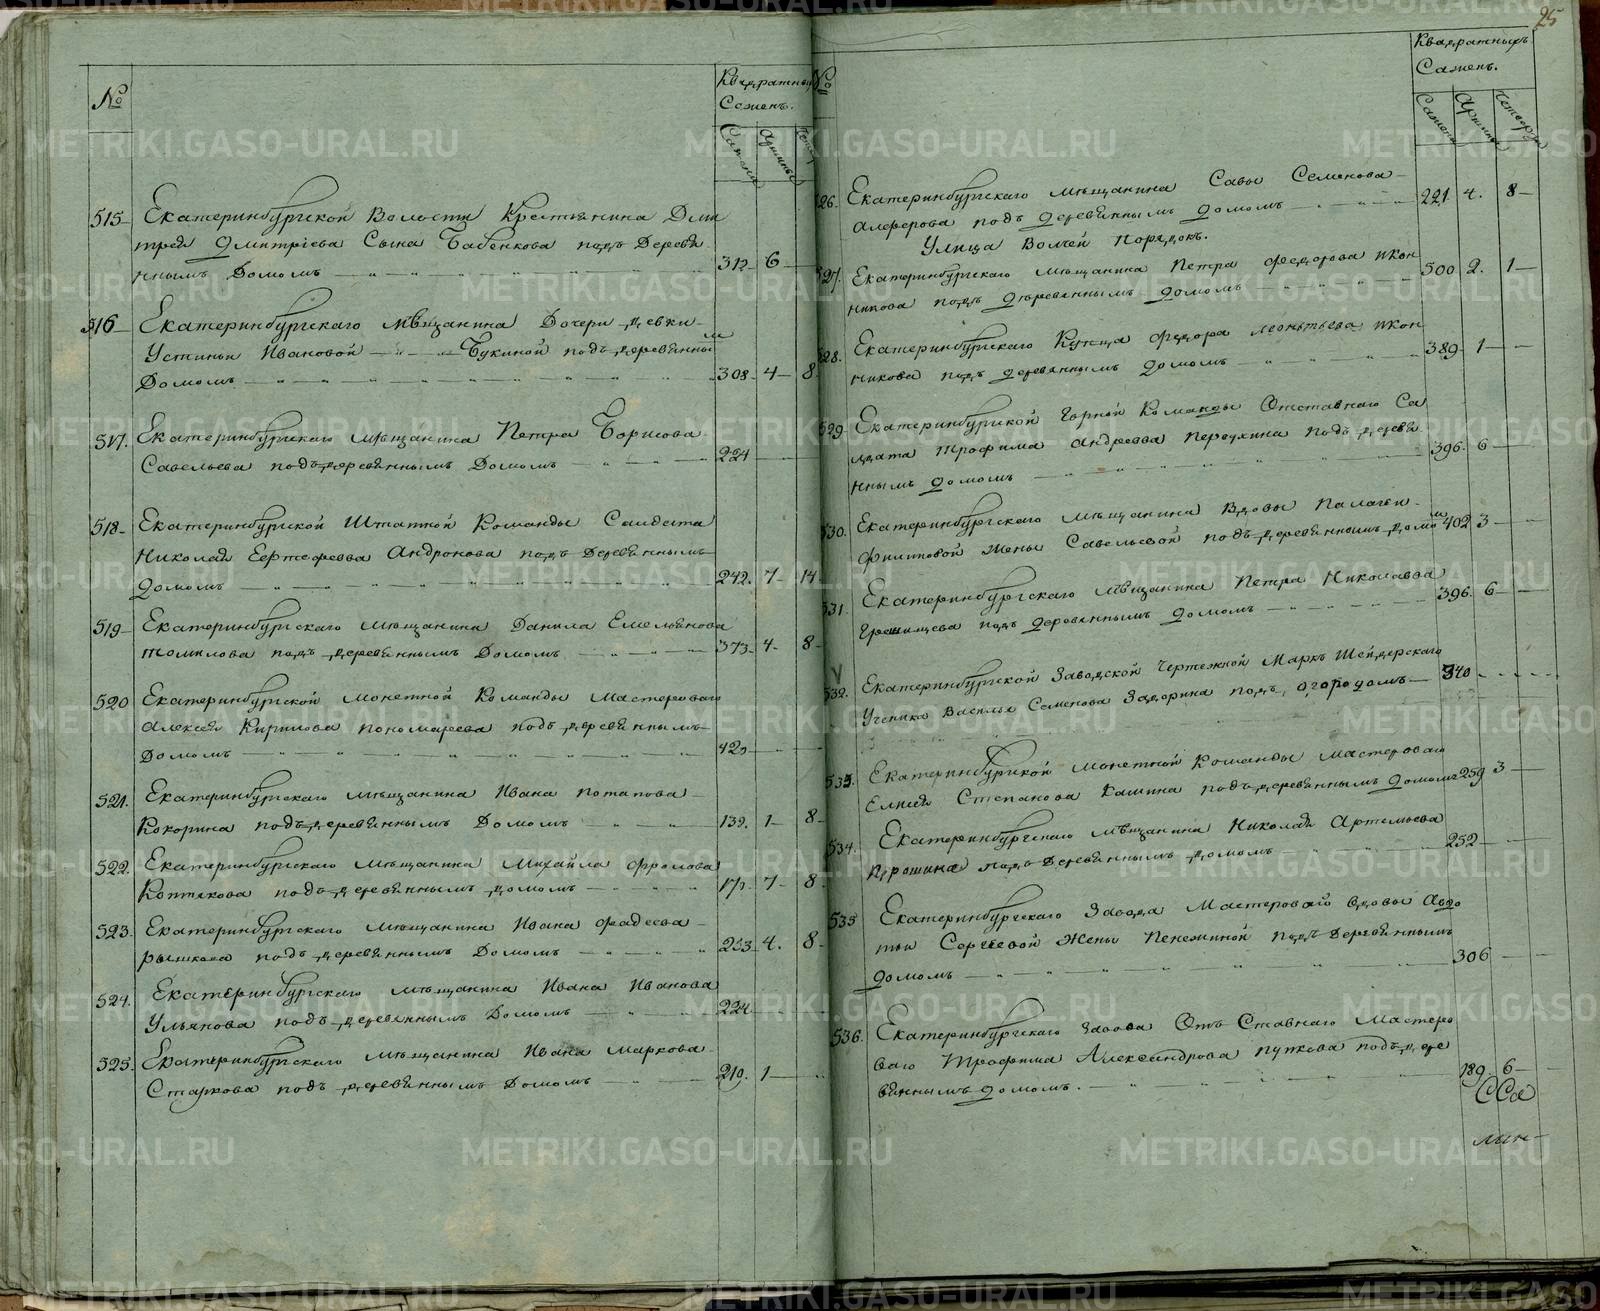 №
Квадратныхъ
Саженъ.
Сажени
Аршины
515 Екатеринбургской Волости Крестьянина Дми
трея Дмитріева Сына Бабенкова подъ Деревя
ннымъ Домомъ 312 6
516 Екатеринбургскаго мѣщанина Дочери девки
Устиньи Ивановой Букиной подъ деревянны
мъ
Домомъ 308 4 8
517. Екатеринбургскаго мѣщанина Петра Борисова
Савельева подъ деревяннымъ Домомъ 224
518 Екатеринбургской Штатной Команды Солдата
Николая Андронова подъ Деревяннымъ
Домомъ 242. 7 14
519 Екатеринбургскаго мѣщанина Данила Емельянова
Томилова подъ деревяннымъ Домомъ 373 4 8
520 Екатеринбургской монетной Команды мастероваго
Алексея Кирилова пономарева подъ деревяннымъ
Домомъ 420
521. Екатеринбургскаго мѣщанина Ивана потапова
Кокорина подъ деревяннымъ Домомъ 139. 1 8
522. Екатеринбургскаго мѣщанина Михайла фролова
Коптякова подъ деревяннымъ домомъ 7 8
523. Екатеринбургскаго мѣщанина Ивана фадеева
рышкова подъ деревяннымъ Домомъ 253 4. 8
524. Екатеринбургскаго мѣщанина Ивана Иванова
Ульянова подъ деревяннымъ Домомъ 224
525. Екатеринбургскаго мѣщанина Ивана маркова
подъ деревяннымъ Домомъ 219. 1
25
№
Квадратныхъ
Саженъ.
Сажени
Аршины
26. Екатеринбургскаго мѣщанина Савы Семенова
Алферова подъ деревяннымъ домомъ 221 4. 8
Улица Волчей порядокъ.
527. Екатеринбургскаго мѣщанина Петра федорова икон
никова подъ деревяннымъ домомъ 500 2. 1
28. Екатеринбургскаго Купца федора леонтьева икон
никова подъ деревяннымъ домомъ 389 1
529 Екатеринбургской Горной Команды Отставнаго Са
лдата трофима андреева подъ деревя
ннымъ домомъ 396. 6
530. Екатеринбургскаго мѣщанина Вдовы палагеи
филиповой Жены Савельевой подъ деревяннымъ домо
мъ 402 3
531. Екатеринбургскаго мѣщанина Петра Николаева
подъ деревяннымъ домомъ 396. 6
V
532. Екатеринбургской Заводской Чертежной Маркъ Шейдерскаго
Ученика Василья Семенова Задорина подъ огородомъ 340
533. Екатеринбургской монетной Команды мастероваго
Елисея Степанова Кашина подъ деревяннымъ домомъ 259 3
534. Екатеринбургскаго мѣщанина Николая Артемьева
подъ Деревяннымъ домомъ 252
535 Екатеринбургскаго Завода мастероваго вдовы Авдо
тьи Сергеевой Жены Пенежиной подъ Деревяннымъ
домомъ 306
536. Екатеринбургскаго завода Отъ Ставнаго мастеро
ваго трофима Александрова пупкова подъ дере
вяннымъ домомъ. 189. 6
METRIKI.GASO-URAL.RU